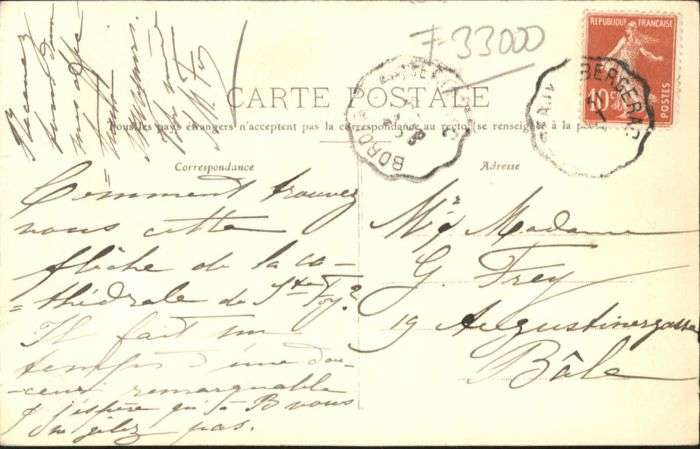 F-33000
RÉPUBLIQUE FRANÇAISE
10c
POSTES
BERGERAC
BORD
CARTE POSTALE
Tous les pays étrangers n'acceptent pas la correspondance au recto, (se renseigner à la poste)
Correspondance
Adresse
Comment trouvez
vous cette
flêche de la ca-
=thédrale de Ste Foy?
Il fait un
temps d'une dou-
ceur remarquable
& j'espère qu'à B vous
ne gelez pas.
Mr & Madame
G. Frey
19 Augustinergasse
Bâle
Recevez